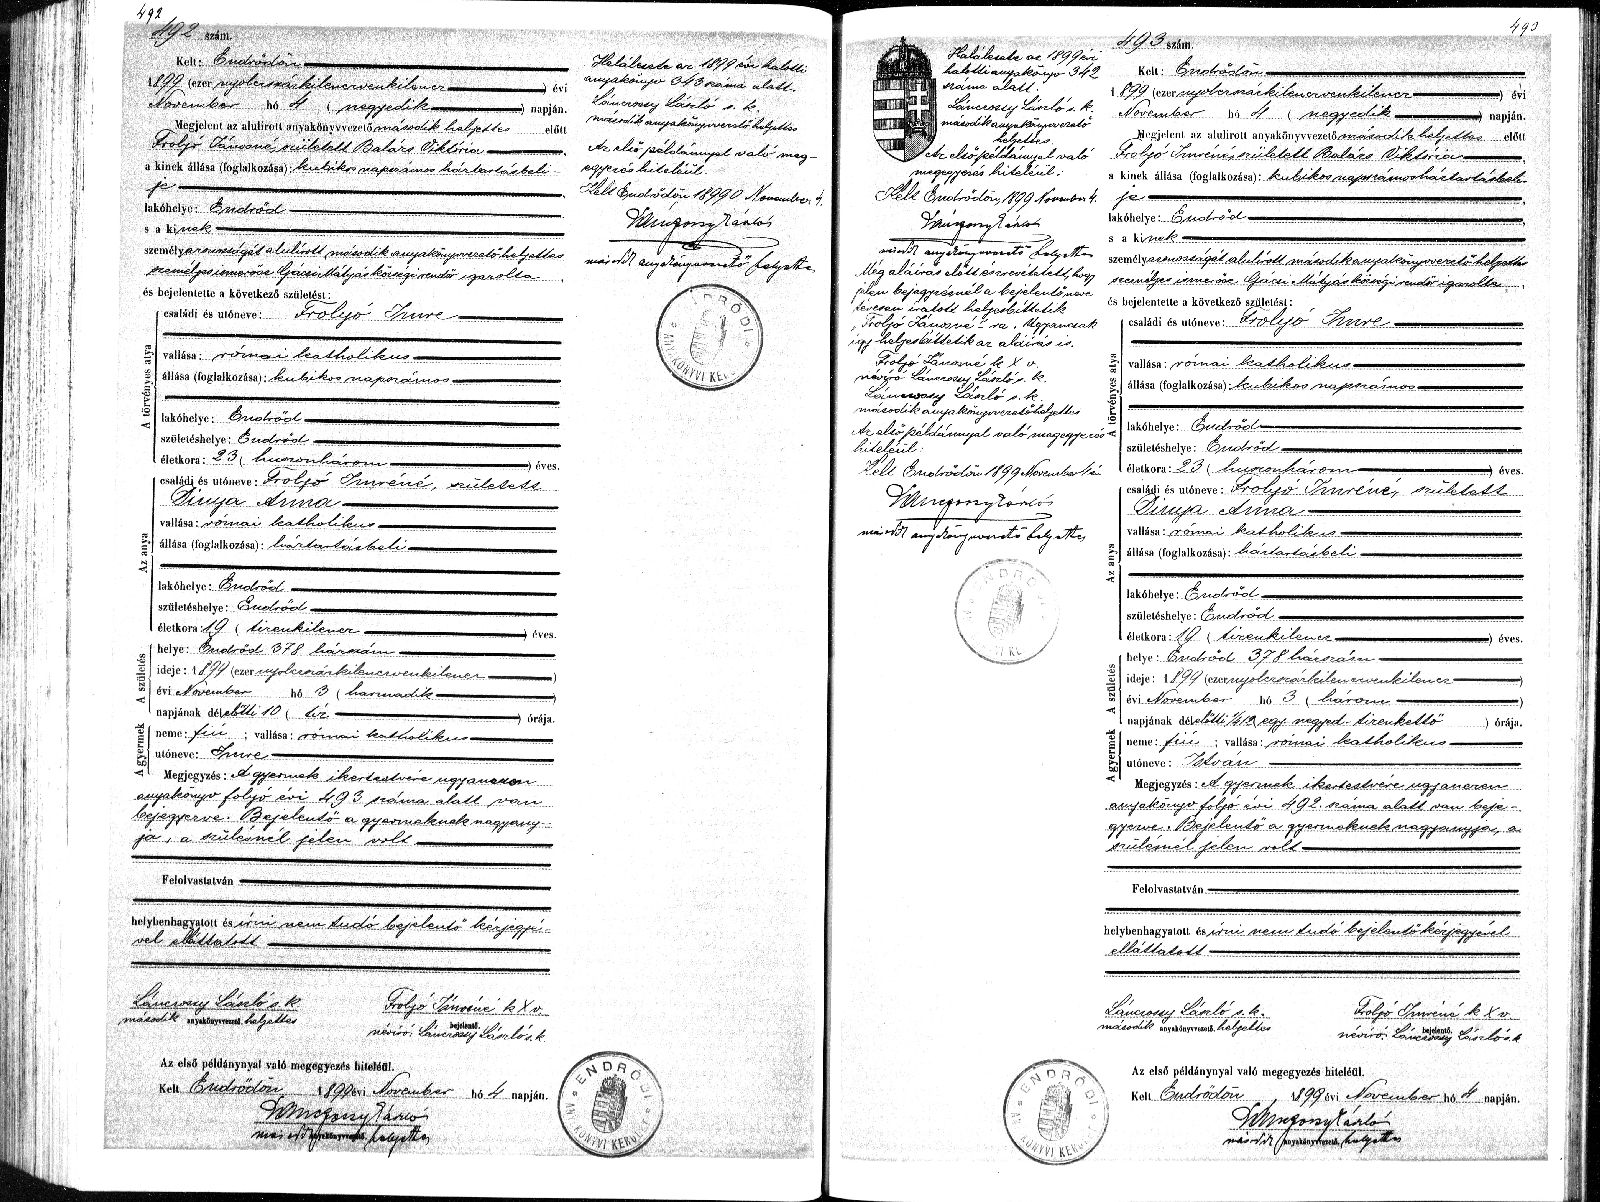 492
492 szám.
Kelt: Endrődön
1899 (ezer nyolczszázkilenczvenkilencz) évi
November hó 4 (negyedik) napján.
Megjelent az alulirott anyakönyvvezető második helyettes előtt
Frolyó Jánosné, született Balázs Viktória
a kinek állása (foglalkozása): kubikos napszámos háztartásbeli-
je
lakóhelye: Endrőd
s a kinek
személyazonosságát alulirott második anyakönyvvezető helyettes
személyes ismerőse Gácsi Mátyás községi rendőr igazolta
és bejelentette a következő születést:
A törvényes atya
családi és utóneve: Frolyó Imre
vallása: római katholikus
állása (foglalkozása): kubikos napszámos
lakóhelye: Endrőd
születéshelye: Endrőd
életkora: 23 (huszonhárom) éves.
Az anya
családi és utóneve: Frolyó Imréné, született
Dinya Anna
vallása: római katholikus
állása (foglalkozása): háztartásbeli
lakóhelye: Endrőd
születéshelye: Endrőd
életkora: 19 (tizenkilencz) éves.
A születés
helye: Endrőd 378 házszám
ideje: 1899 (ezer nyolczszázkilenczvenkilencz)
évi November hó 3 (harmadik)
napjának délelőtti 10 (tíz) órája.
A gyermek
neme: fiú; vallása: római katholikus
utóneve: Imre
Megjegyzés: A gyermek ikertestvére ugyanezen
anyakönyv folyó évi 493 száma alatt van
bejegyezve. Bejelentő a gyermeknek nagyany-
ja, a szülésnél jelen volt
Felolvastatván
helybenhagyatott és írni nem tudó bejelentő kézjegyé-
vel elláttatott
Lánczossy László s. k.
második anyakönyvvezető helyettes
Frolyó Jánosné k X v.
bejelentő.
névíró: Lánczossy László s. k.
Az első példánynyal való megegyezés hiteléül.
Kelt Endrődön 1899 évi November hó 4 napján.
Lánczossy László
második anyakönyvvezető helyettes
ENDRŐDI
ANYAKÖNYVI KERÜLET
Halálesete az 1899 évi halotti
anyakönyv 343 száma alatt.
Lánczossy László s. k.
második anyakönyvvezető helyettes
Az első példánynyal való meg-
egyezés hiteléül.
Kelt Endrődön 1899 November 4.
Lánczossy László
második anyakönyvvezető helyettes
ENDRŐDI
ANYAKÖNYVI KERÜLET
493
Halálesete az 1899 évi
halotti anyakönyv 342
száma alatt.
Lánczossy László s. k.
második anyakönyvvezető
helyettes
Az első példánynyal való
megegyezés hiteléül.
Kelt Endrődön, 1899 November 4.
Lánczossy László
második anyakönyvvezető helyettes
Még aláírás előtt észrevétetett, hogy
jelen bejegyzésnél a bejelentő neve
tévesen íratott helyesbíttetik
"Frolyó Jánosné"-ra. Ugyancsak
így helyesbíttetik az aláírás is.
Frolyó Jánosné k X v.
névíró Lánczossy László s. k.
Lánczossy László s. k.
második anyakönyvvezető helyettes
Az első példánynyal való megegyezés
hiteléül.
Kelt Endrődön 1899 November 4 én
Lánczossy László
második anyakönyvvezető helyettes
ENDRŐDI
ANYAKÖNYVI KERÜLET
493 szám.
Kelt: Endrődön
1899 (ezer nyolczszázkilenczvenkilencz) évi
November hó 4 (negyedik) napján.
Megjelent az alulirott anyakönyvvezető második helyettes előtt
Frolyó Imréné, született Balázs Viktória
a kinek állása (foglalkozása): kubikos napszámos háztartásbeli-
je
lakóhelye: Endrőd
s a kinek
személyazonosságát alulirott második anyakönyvvezető helyettes
személyes ismerőse Gácsi Mátyás községi rendőr igazolta
és bejelentette a következő születést:
A törvényes atya
családi és utóneve: Frolyó Imre
vallása: római katholikus
állása (foglalkozása): kubikos napszámos
lakóhelye: Endrőd
születéshelye: Endrőd
életkora: 23 (huszonhárom) éves.
Az anya
családi és utóneve: Frolyó Imréné, született
Dinya Anna
vallása: római katholikus
állása (foglalkozása): háztartásbeli
lakóhelye: Endrőd
születéshelye: Endrőd
életkora: 19 (tizenkilencz) éves.
A születés
helye: Endrőd 378 házszám
ideje: 1899 (ezer nyolczszázkilenczvenkilencz)
évi November hó 3 (három)
napjának délelőtti 1/4 12 (egy negyed tizenkettő) órája.
A gyermek
neme: fiú; vallása: római katholikus
utóneve: István
Megjegyzés: A gyermek ikertestvére ugyanezen
anyakönyv folyó évi 492 száma alatt van beje-
gyezve. Bejelentő a gyermeknek nagyanyja, a
szülésnél jelen volt
Felolvastatván
helybenhagyatott és írni nem tudó bejelentő kézjegyével
elláttatott
Lánczossy László s. k.
második anyakönyvvezető helyettes
Frolyó Imréné k X v.
bejelentő.
névíró: Lánczossy László s. k.
Az első példánynyal való megegyezés hiteléül.
Kelt Endrődön 1899 évi November hó 4 napján.
Lánczossy László
második anyakönyvvezető helyettes
ENDRŐDI
ANYAKÖNYVI KERÜLET